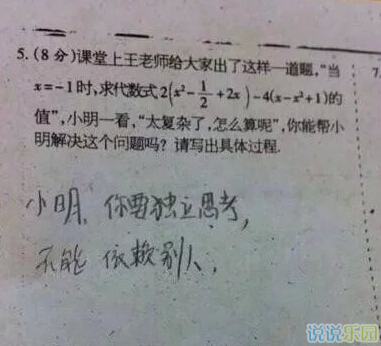 5.(8分)课堂上王老师给大家出了这样一道题,“当
x=-1时,求代数式2(x²-1/2+2x)-4(x-x²+1)的
值”,小明一看,“太复杂了,怎么算呢”,你能帮小
明解决这个问题吗?请写出具体过程.
7
小明、你要独立思考,
不能依赖别人.
说说乐园